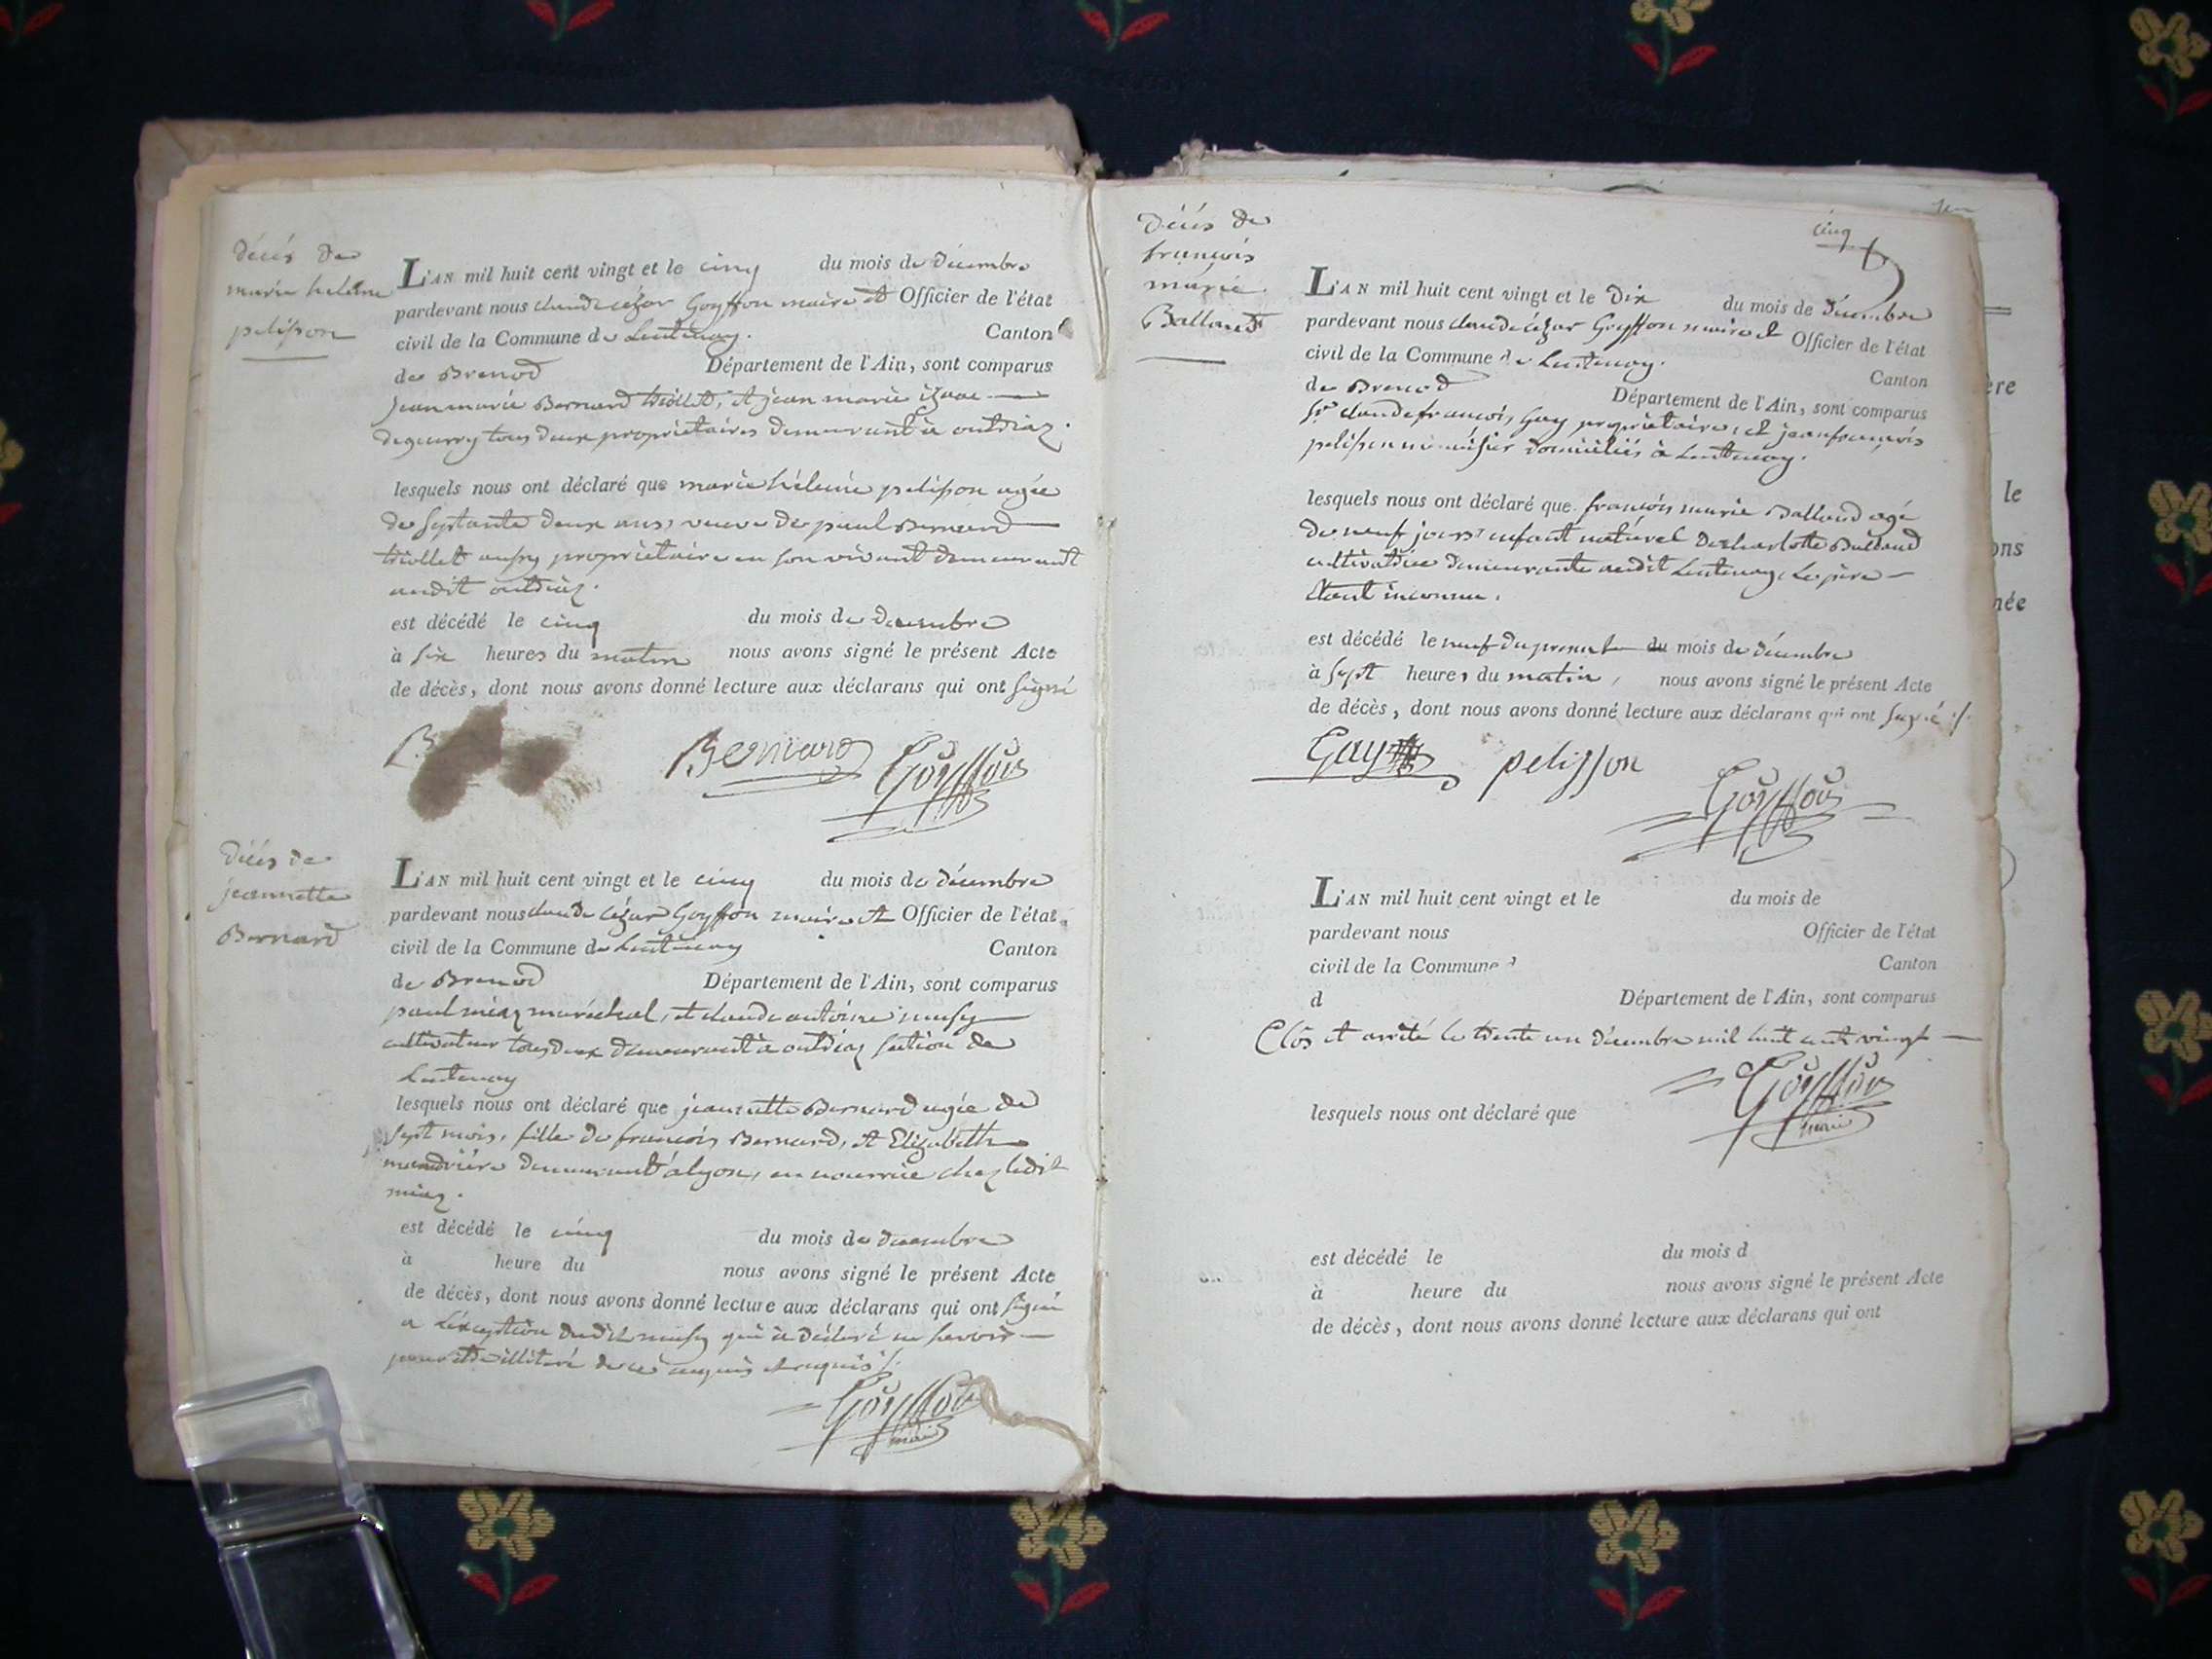 décés de
marie heléine
pelisson
L'AN mil huit cent vingt et le cinq du mois de décembre
pardevant nous claude cézar Goyffon maire et Officier de l'état
civil de la Commune de Lentenay. Canton
de Brenod Département de l'Ain, sont comparus
jean marie Bernard triollet, et jean marie izaac
deguerry tous deux propriétaires demeurant à outriaz.
lesquels nous ont déclaré que marie héleine pelisson agée
de septante deux ans, veuve de paul Bernard
triollet aussy propriétaire en son vivant demeurant
audit outriaz.
est décédé le cinq du mois de décembre
à six heures du matin nous avons signé le présent Acte
de décès, dont nous avons donné lecture aux déclarans qui ont signé
B Bernard Goyffon
Décés de
jeannette
Bernard
L'AN mil huit cent vingt et le cinq du mois de décembre
pardevant nous claude cézar Goyffon maire et Officier de l'état
civil de la Commune de Lentenay Canton
de Brenod Département de l'Ain, sont comparus
paul miaz maréchal, et claude antoine musy
cultivateur tous deux demeurant à outriaz section de
Lentenay
lesquels nous ont déclaré que jeannette Bernard agée de
sept mois, fille de françois Bernard, et Elizabeth
mandrière demeurant à lyon, en nourrice chez ledit
miaz.
est décédé le cinq du mois de décembre
à heure du nous avons signé le présent Acte
de décès, dont nous avons donné lecture aux déclarans qui ont signé
a l'éxception dudit musy qui a déclaré ne savoir
pour être illitéré de ce enquis et requis ./.
Goyffon
maire
Décés de
françois
marie
Balland
cinq
L'AN mil huit cent vingt et le Dix du mois de décembre
pardevant nous claude cézar Goyffon maire et Officier de l'état
civil de la Commune de Lentenay. Canton
de Brenod Département de l'Ain, sont comparus
Sr claude françois Gay propriétaire, et jean françois
pelisson menuisier domiciliés à Lentenay.
lesquels nous ont déclaré que françois marie Balland agé
de neuf jours enfant naturel de charlotte Balland
cultivatrice demeurante audit Lentenay, le père
étant inconnu.
est décédé le neuf du present du mois de décembre
à sept heures du matin, nous avons signé le présent Acte
de décès, dont nous avons donné lecture aux déclarans qui ont signé ./.
Gay pelisson
Goyffon
L'AN mil huit cent vingt et le du mois de
pardevant nous Officier de l'état
civil de la Commune d Canton
d Département de l'Ain, sont comparus
Clôs et arrêté le trente un décembre mil huit cent vingt
Goyffon
maire
lesquels nous ont déclaré que
est décédé le du mois d
à heure du nous avons signé le présent Acte
de décès, dont nous avons donné lecture aux déclarans qui ont
ère
le
ons
née